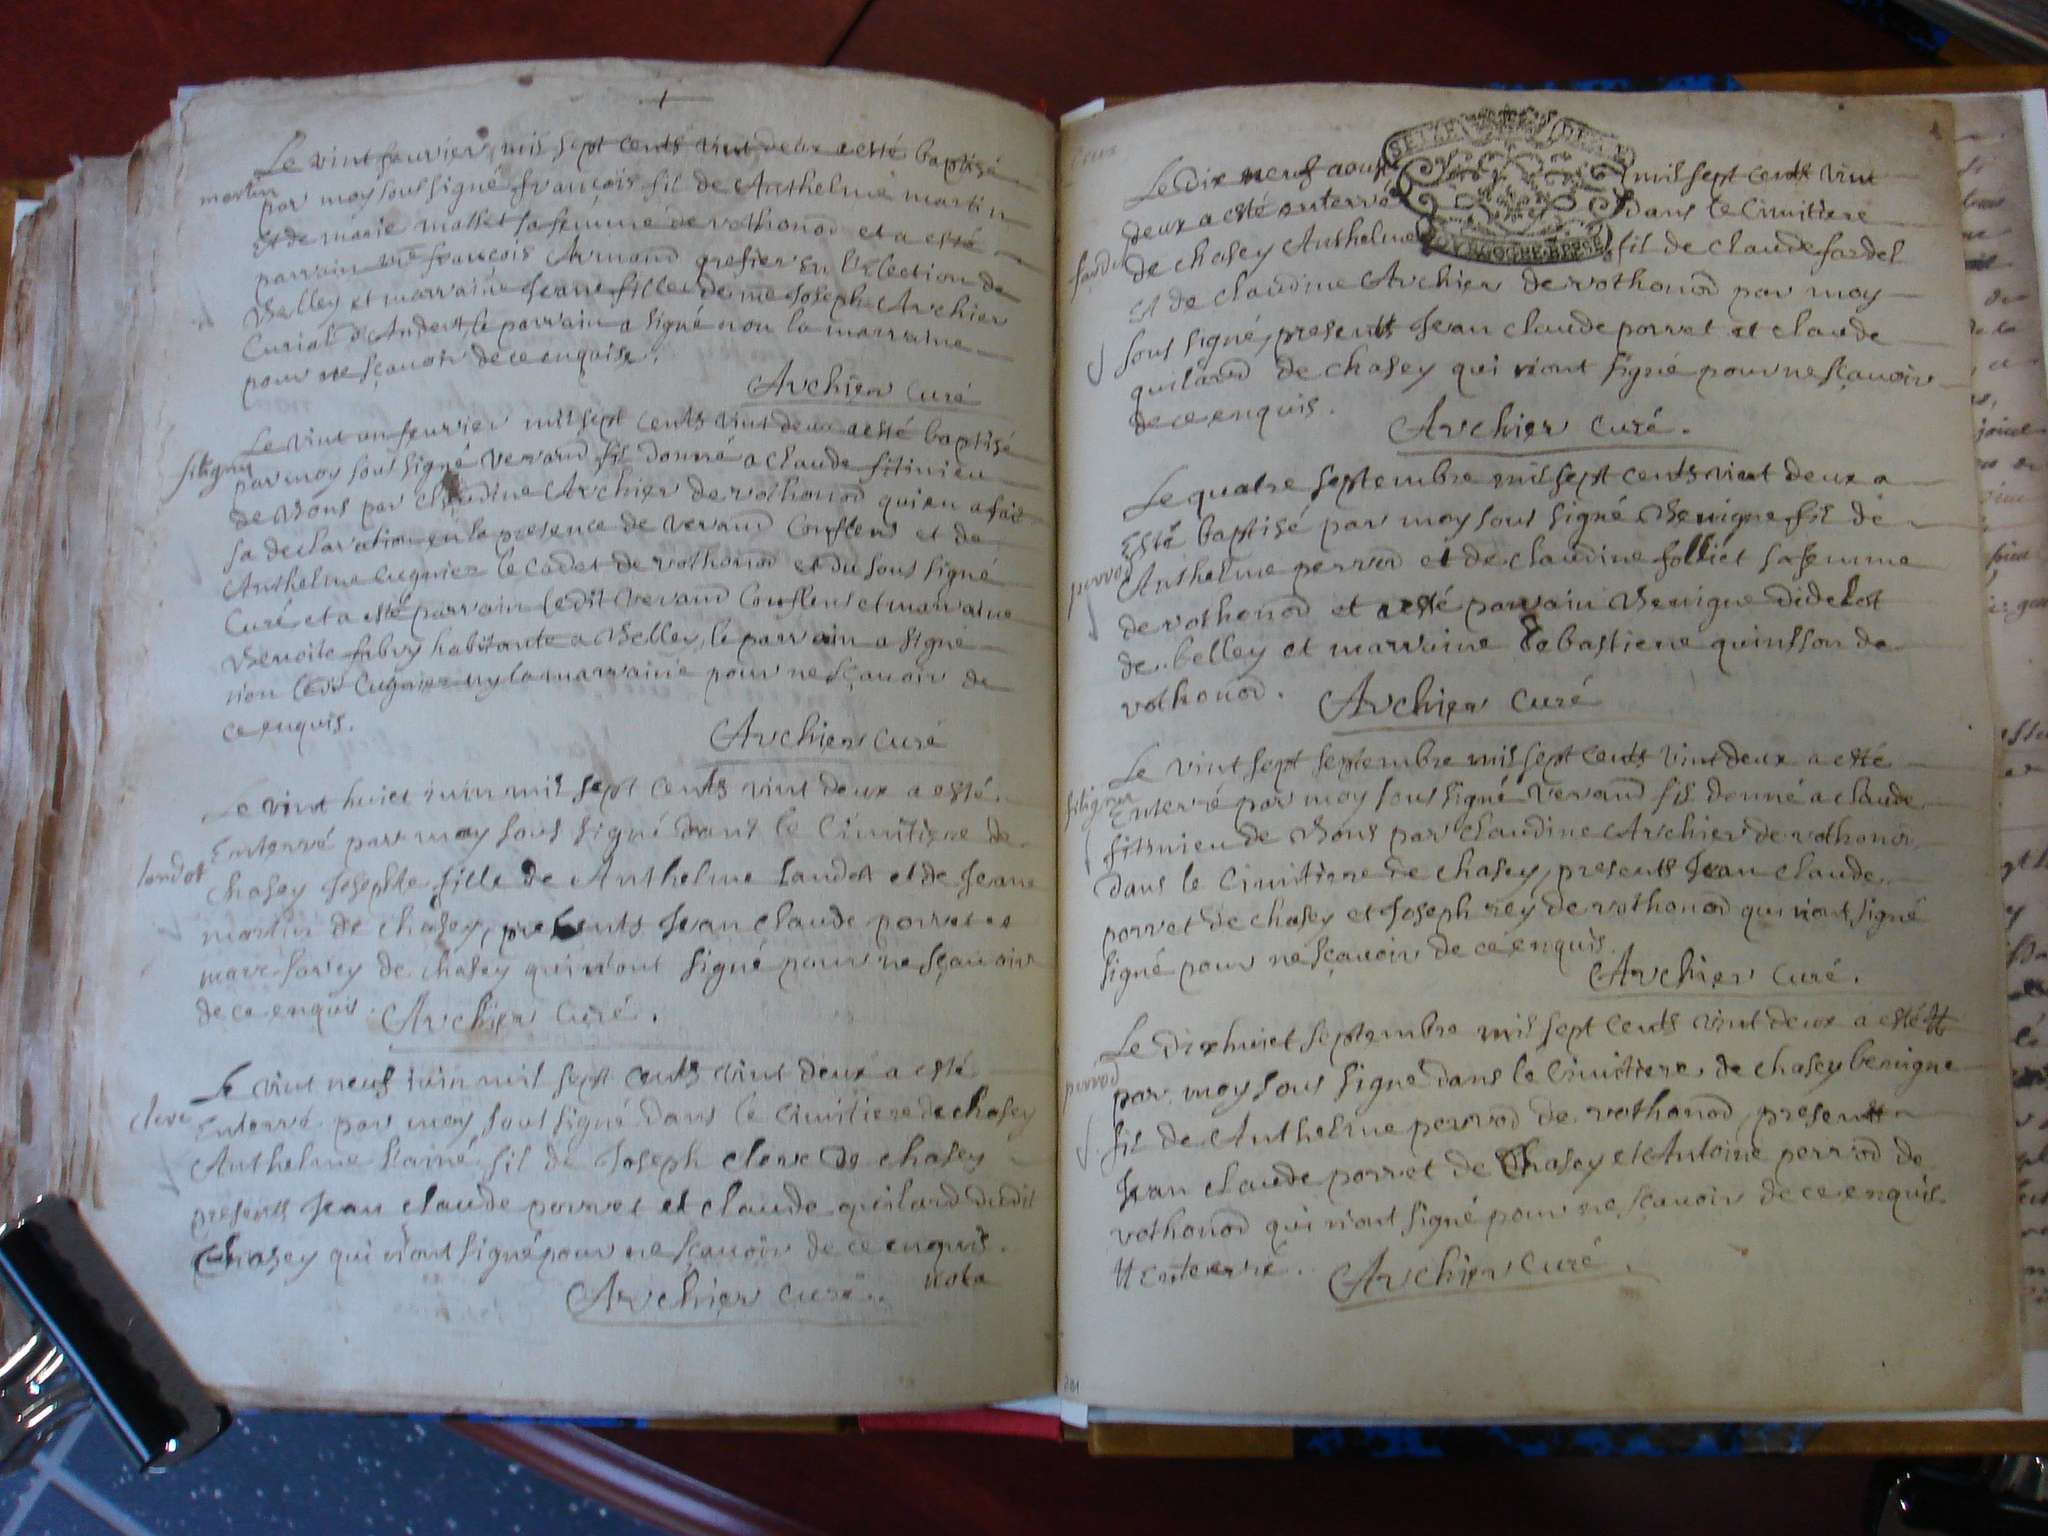 Le vint feuvrier, mil sept cents vint deux a esté baptisé
martin
par moy sous signé françois fil de Anthelme martin
Et de marie mallet sa femme de vothonod et a esté
parrain me françois Armand grefier En l'Election de
Belley et marraine Jeane fille de me Joseph Archier
Curial d'Andert, le parrain a signé non la marraine
pour ne sçauoir de ce enquise.
Archier Curé
Le vint un feuvrier mil sept cents vint deux a esté baptisé
par moy sous signé verand fil donné a claude fitinieu
de Bons par claudine Archier de vothonod qui en a fait
sa declaration en la presence de verand Conflens et de
Anthelme Cugnier le cadet de vothonod et du sous signé
Curé et a esté parrain ledit verand Conflens et marraine
Benoite fabry habitante a Belley, le parrain a signé
non ledit Cugnier ny la marraine pour ne sçauoir de
ce enquis.
Archier Curé
Le vint huict iuin mil sept cents vint deux a esté
Enterré par moy sous signé dans le Cimitiere de
landot
chasey Josephte fille de Anthelme Landot et de Jeane
martin de chasey, presents Jean claude porret et
marc sorey de chasey qui n'ont signé pour ne sçauoir
de ce enquis. Archier Curé.
Le vint neuf iuin mil sept cents vint deux a esté
clerc
Enterré par moy sous signé dans le Cimitiere de chasey
Anthelme l'ainé fil de Joseph clerc de chasey
presents Jean claude porret et claude quilard dudit
Chasey qui n'ont signé pour ne sçauoir de ce enquis.
Archier Curé. nota
SEIZE DEN
Le dix neuf aoust mil sept cents vint
deux a esté enterré dans le Cimitiere
de chasey Anthelme fil de claude fardel
BOVRGOGNE BRESSE
fardel
Et de claudine Archier de vothonod par moy
sous signé, presents Jean claude porret et claude
quilard de chasey qui n'ont signé pour ne sçauoir
de ce enquis.
Archier Curé.
Le quatre septembre mil sept cents vint deux a
Esté baptisé par moy sous signé Benigne fil de
perrod
Anthelme perrod et de claudine folliet sa femme
de vothonod et a esté parrain Benigne didelot
de belley et marraine Sebastiene quinsson de
vothonod.
Archier Curé
Le vint sept septembre mil sept cents vint deux a esté
Enterré par moy sous signé verand fil donné a claude
fitinieu de Bons par claudine Archier de vothonod
dans le Cimitiere de chasey, presents Jean claude
porret de chasey et Joseph rey de vothonod qui n'ont signé
signé pour ne sçauoir de ce enquis.
Archier Curé.
Le dix huict septembre mil sept cents vint deux a esté #
perrod
par moy sous signé dans le Cimitiere de chasey benigne
fil de Anthelme perrod de vothonod, presents
Jean claude porret de Chasey et Antoine perrod de
vothonod qui n'ont signé pour ne sçauoir de ce enquis.
# enterré.
Archier Curé.